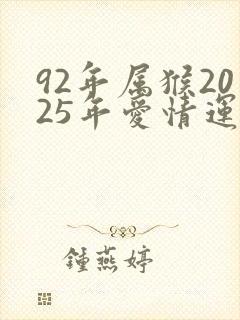 92年属猴20
25年爱情運
鍾燕婷